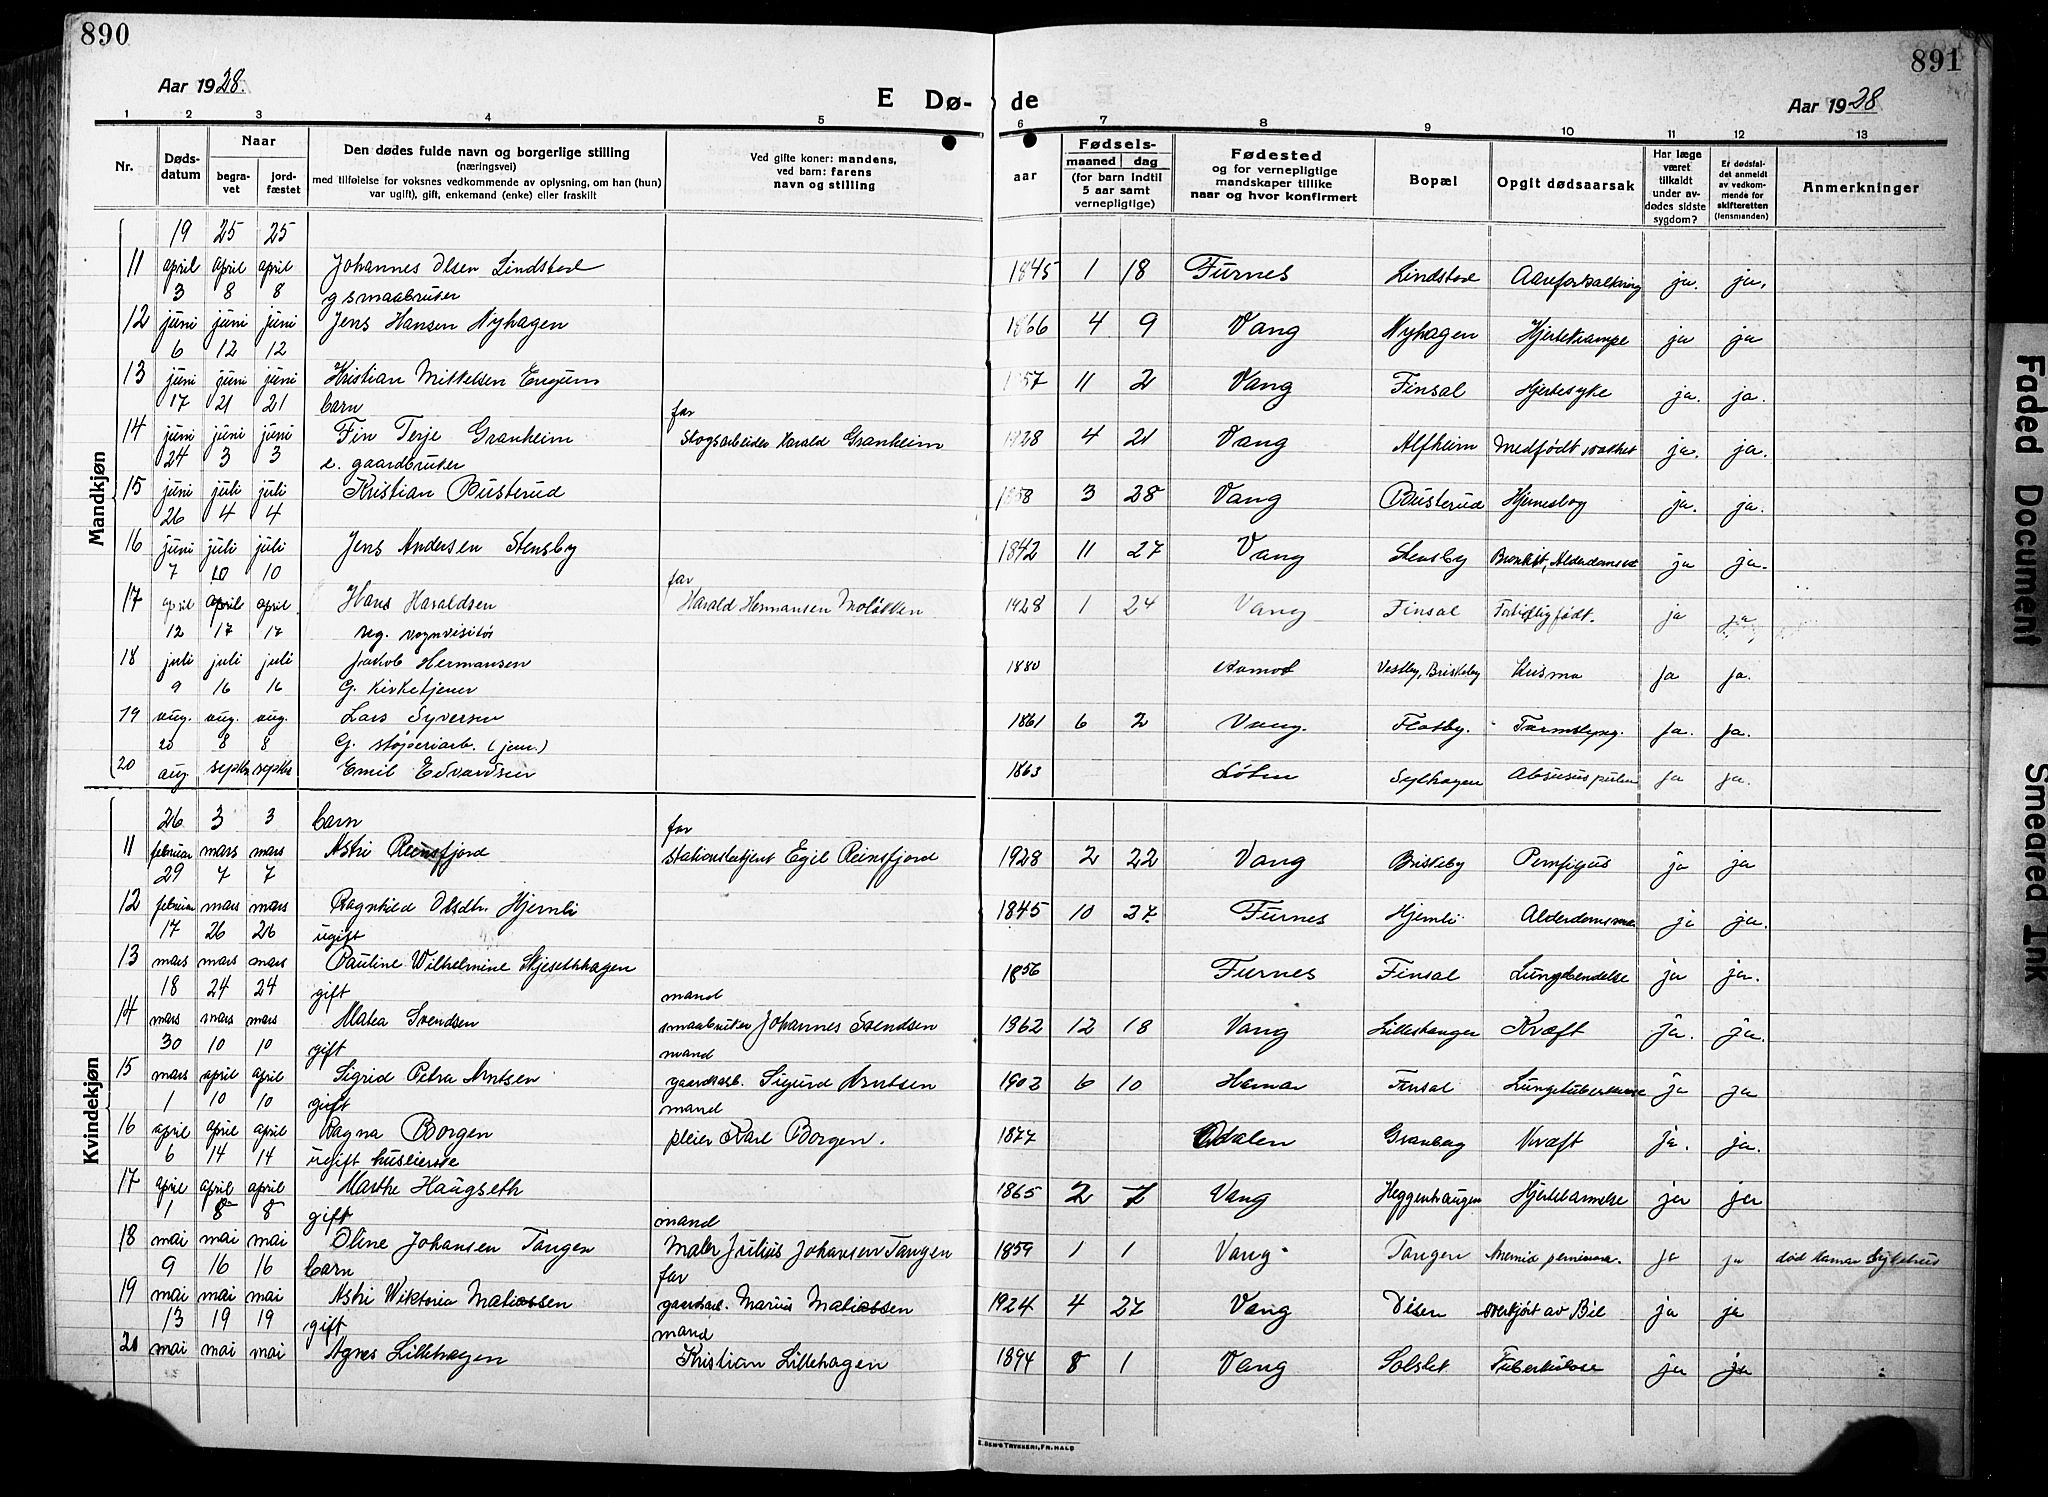 890
891
Aar 1928.
E Dø- de
Aar 1928
1 2 3 4 5 6 7 8 9 10 11 12 13
Nr.
Døds-datum
Naar
begra-vet
jord-fæstet
Den dødes fulde navn og borgerlige stilling
(næringsvei)
med tilføielse for voksnes vedkommende av oplysning, om han (hun)
var ugift), gift, enkemand (enke) eller fraskilt
Ved gifte koner: mandens,
ved barn: farens
navn og stilling
aar
Fødsels-
maaned dag
(for barn indtil
5 aar samt
vernepligtige)
Fødested
og for vernepligtige
mandskaper tillike
naar og hvor konfirmert
Bopæl
Opgit dødsaarsak
Har læge
været
tilkaldt
under av-
dødes sidste
sygdom?
Er dødsfal-
det anmeldt
av vedkom-
mende for
skifteretten
(lensmanden)
Anmerkninger
Mandkjøn
19 25 25
11 april april april Johannes Olsen Lindstad 1845 1 18 Furnes Lindstad Aareforkalkning ja. ja.
3 8 8 g smaabruker
12 juni juni juni Jens Hansen Nyhagen 1866 4 9 Vang Nyhagen Hjertekrampe ja ja
6 12 12
13 juni juni juni Kristian Mikkelsen Engum 1857 11 2 Vang Finsal Hjertesyke ja. ja.
17 21 21 barn far
14 juni juni juni Fin Terje Granheim Skogsarbeider Harald Granheim 1928 4 21 Vang Alfheim Medfødt svakhet ja. ja.
24 3 3 e. gaardbruker
15 juni juli juli Kristian Busterud 1858 3 28 Vang Busterud Hjerneslag ja. ja.
26 4 4
16 juni juli juli Jens Andersen Stensby 1842 11 27 Vang Stensby Bronkit, Alderdomssvk ja ja.
7 10 10 far
17 april april april Hans Haraldsen Harald Hermansen Moløkken 1928 1 24 Vang Finsal Fortidligfødt. ja ja
12 17 17 vognvisitør
18 juli juli juli Jakob Hermansen 1880 Aamot Vestby, Briskeby ja ja.
9 16 16 G. Kirketjener
19 aug. aug. aug. Lars Syversen 1861 6 2 Vang. Flatby. Tarmslyng. ja. ja.
20 8 8 G. støperiarb. (jern.)
20 aug. septbr septbr Emil Edvardsen 1863 Løten Sylhagen ja ja.
Kvindekjøn
26 3 3 barn far
11 februar mars mars Astri Reinsfjord stationsbetjent Egil Reinsfjord 1928 2 22 Vang Briskeby Pemfigus ja ja
29 7 7
12 februar mars mars Ragnhild Olsdtr. Hjemli 1845 10 27 Furnes Hjemli Alderdomssvak ja ja.
17 26 26 ugift
13 mars mars mars Pauline Wilhelmine Skjesethhagen 1856 Furnes Finsal Lungebendelse ja ja.
18 24 24 gift mand
14 mars mars mars Matea Svendsen smaabruker Johannes Svendsen 1862 12 18 Vang Lillehaugen Kræft ja. ja.
30 10 10 gift mand
15 mars april april Sigrid Petra Arntsen gaardsarb. Sigurd Arntsen 1902 6 10 Hamar Finsal Lungetuberkulose ja ja
1 10 10 gift mand
16 april april april Ragna Borgen pleier Karl Borgen. 1877 Odalen Granberg Kræft ja. ja.
6 14 14 ugift huslierske
17 april april april Marthe Haugseth 1865 2 7 Vang Heggenhaugen Hjertelammelse ja ja
1 8 8 gift mand
18 mai mai mai Oline Johansen Tangen Maler Julius Johansen Tangen 1859 1 1 Vang Tangen Anemia perniciosa. ja ja død Hamar Sykehus
9 16 16 barn far
19 mai mai mai Astri Wiktoria Matiassen gaardsarb. Marius Matiassen 1924 4 27 Vang Disen overkjørt av Bil ja ja
13 19 19 gift mand
20 mai mai mai Agnes Lillehagen Kristian Lillehagen 1894 8 1 Vang Solslet Tuberkulose ja ja
E. SEM'S TRYKKERI, FR.HALD
Faded Document
Smeared Ink